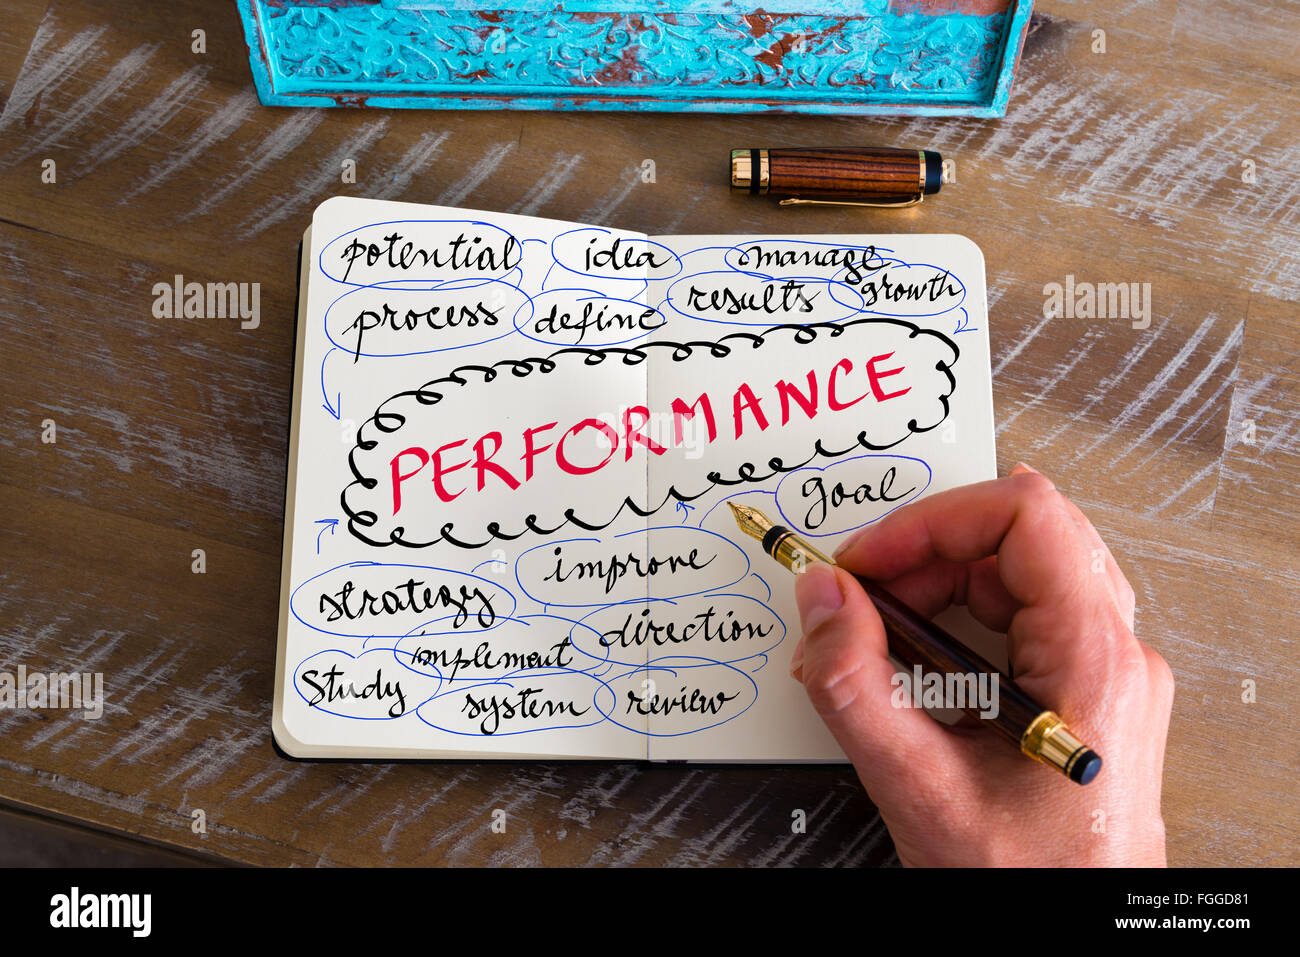 potential idea manage
process define results growth
PERFORMANCE
goal
improve
strategy direction
implement
study system review
a alamy stock photo
FGGD81
www.alamy.com